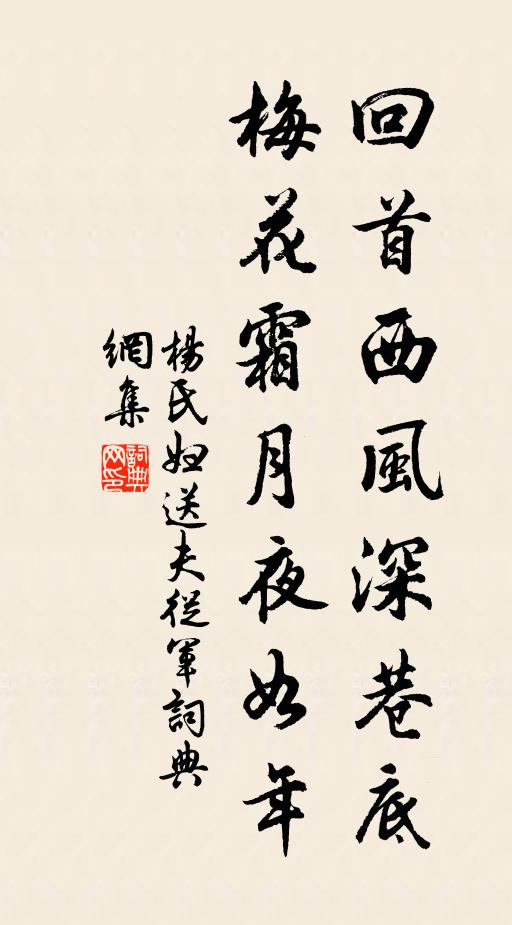 回首西風深巷底
梅花霜月夜如年
楊氏妇送夫從軍詞典
網集
詞典
网印